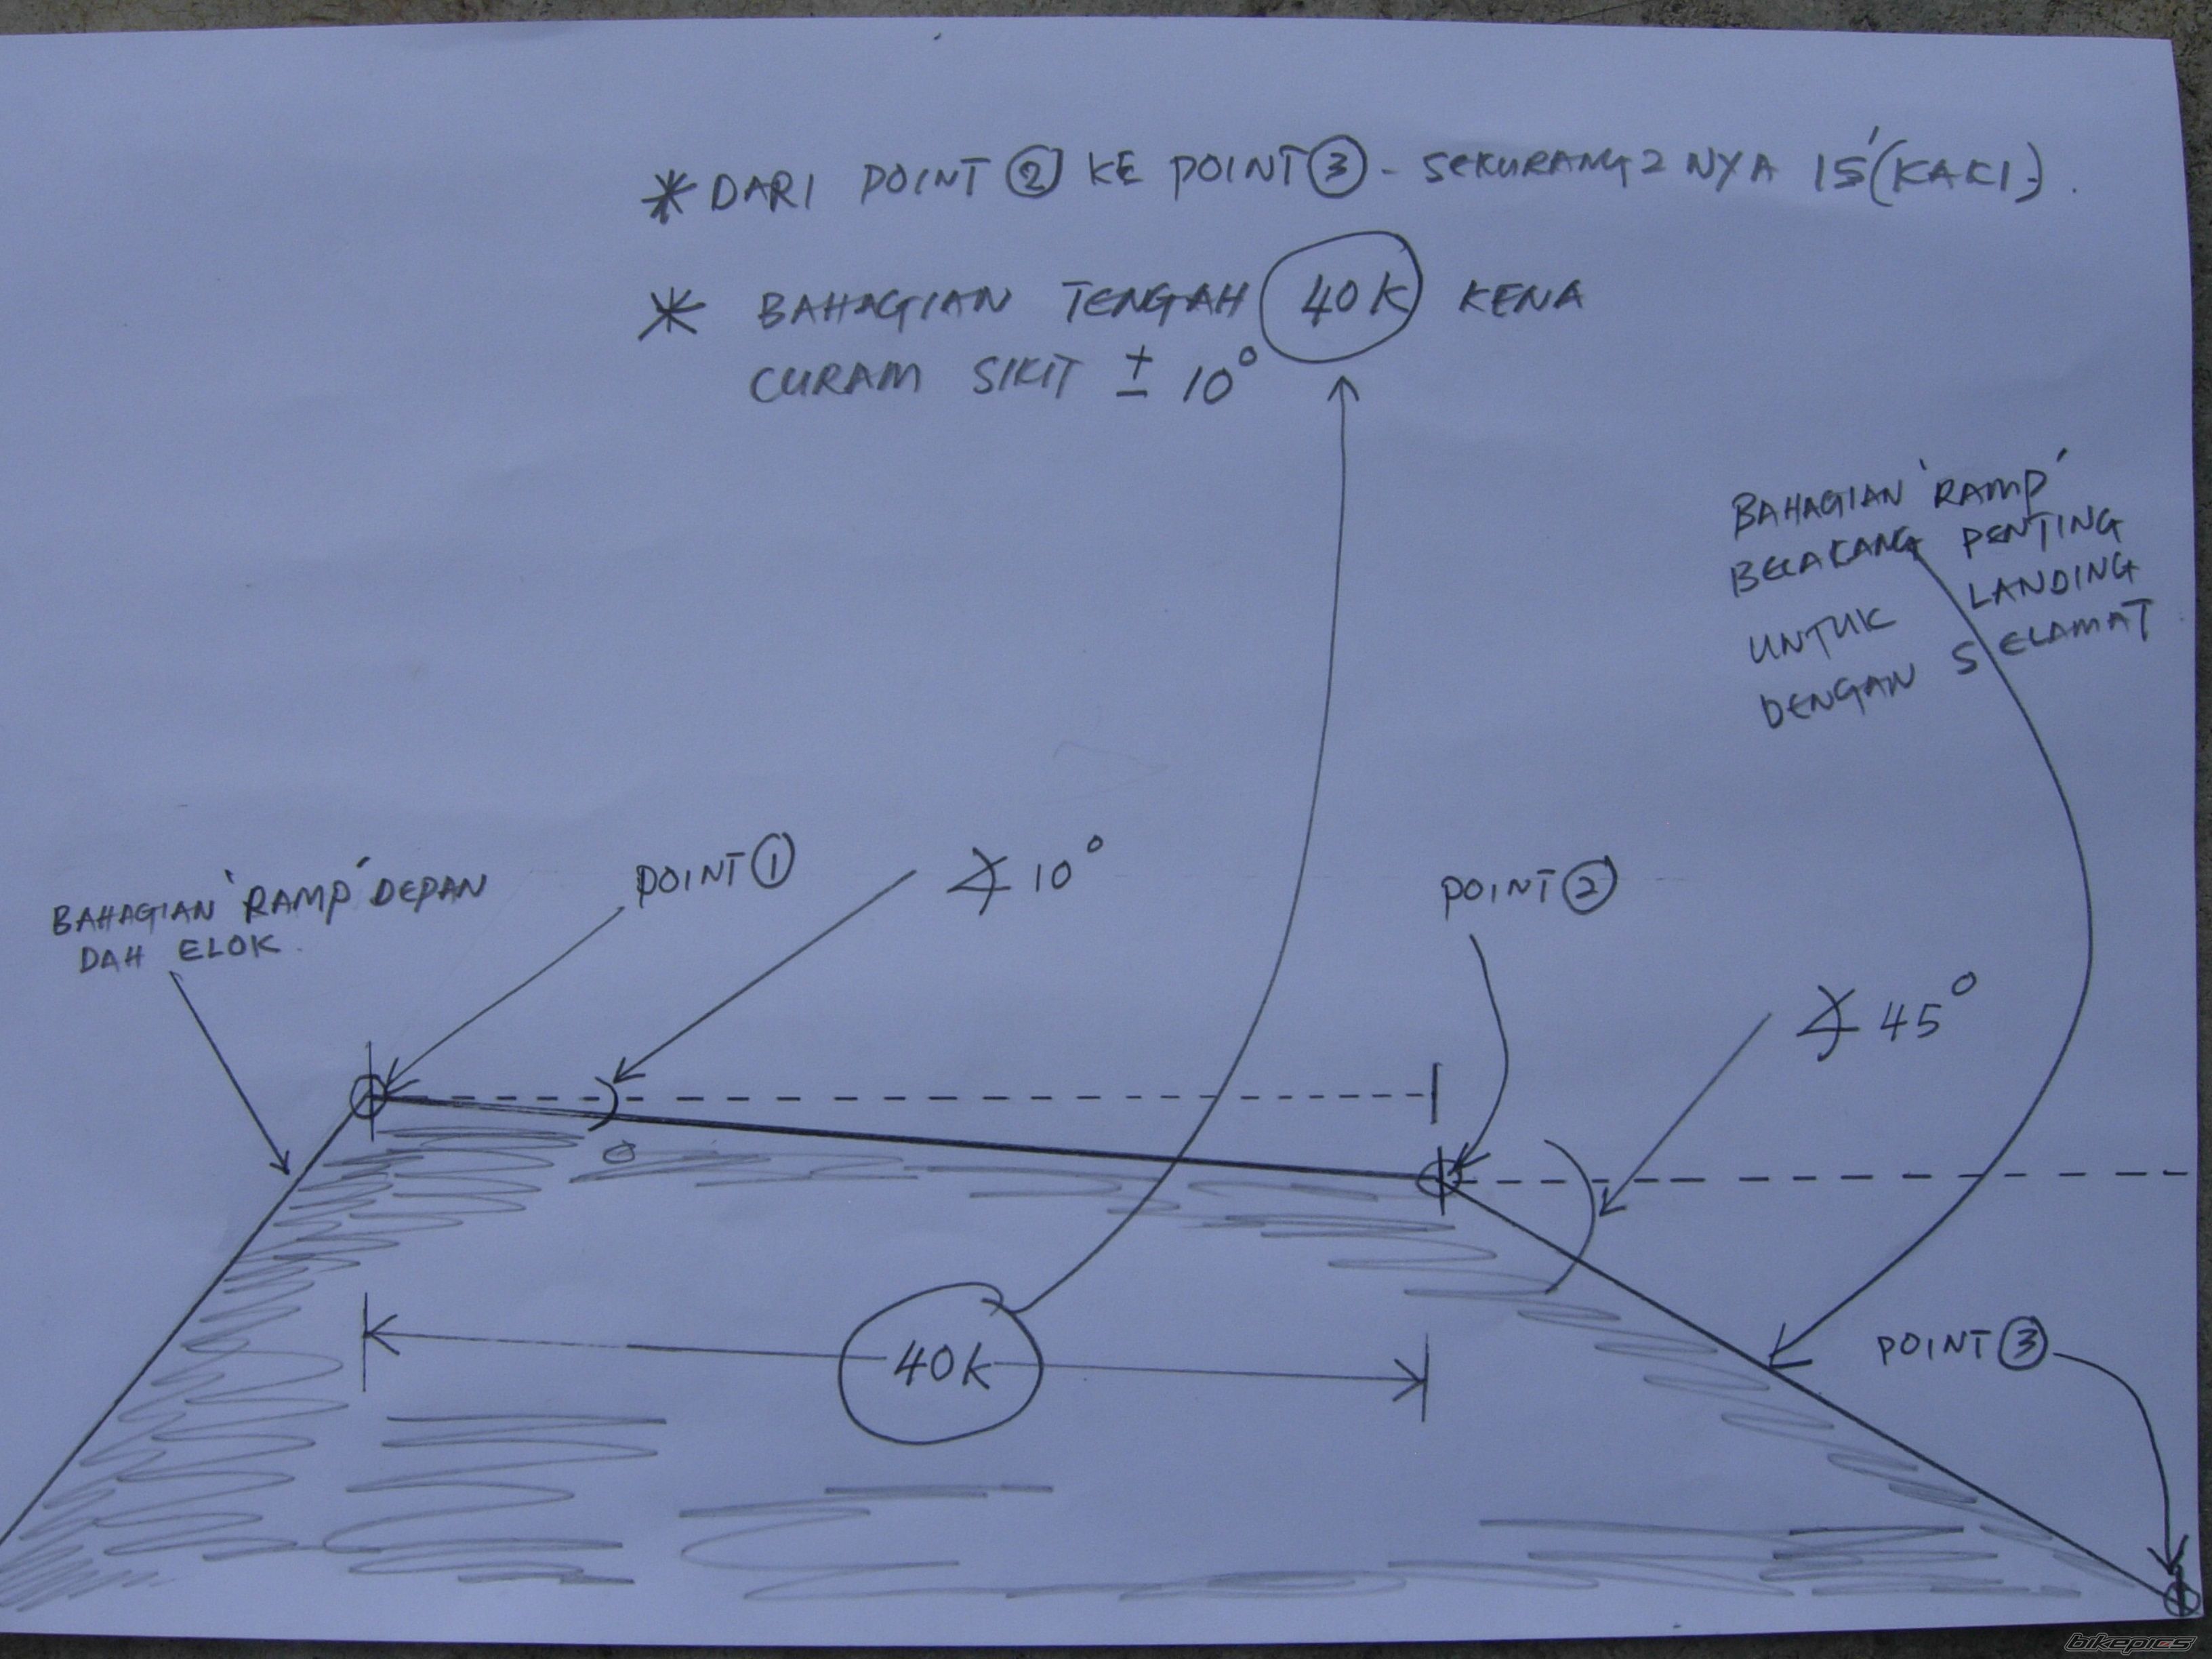 * DARI POINT ② KE POINT ③ - SEKURANG2 NYA 15' (KAKI).
* BAHAGIAN TENGAH 40K KENA
CURAM SIKIT ± 10°
BAHAGIAN 'RAMP'
BELAKANG PENTING
UNTUK LANDING
DENGAN SELAMAT
BAHAGIAN 'RAMP' DEPAN
DAH ELOK.
POINT ①
∢ 10°
POINT ②
∢ 45°
40K
POINT ③
bikepics